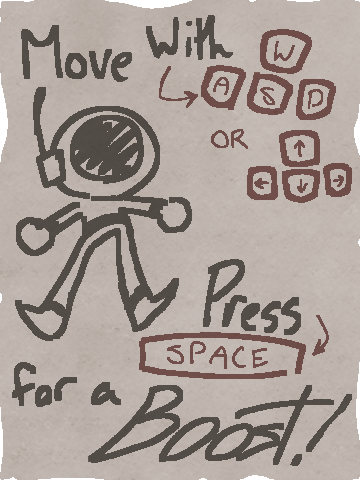 Move With
W
A S D
OR
↑
← ↓ →
Press
SPACE
for a
Boost!